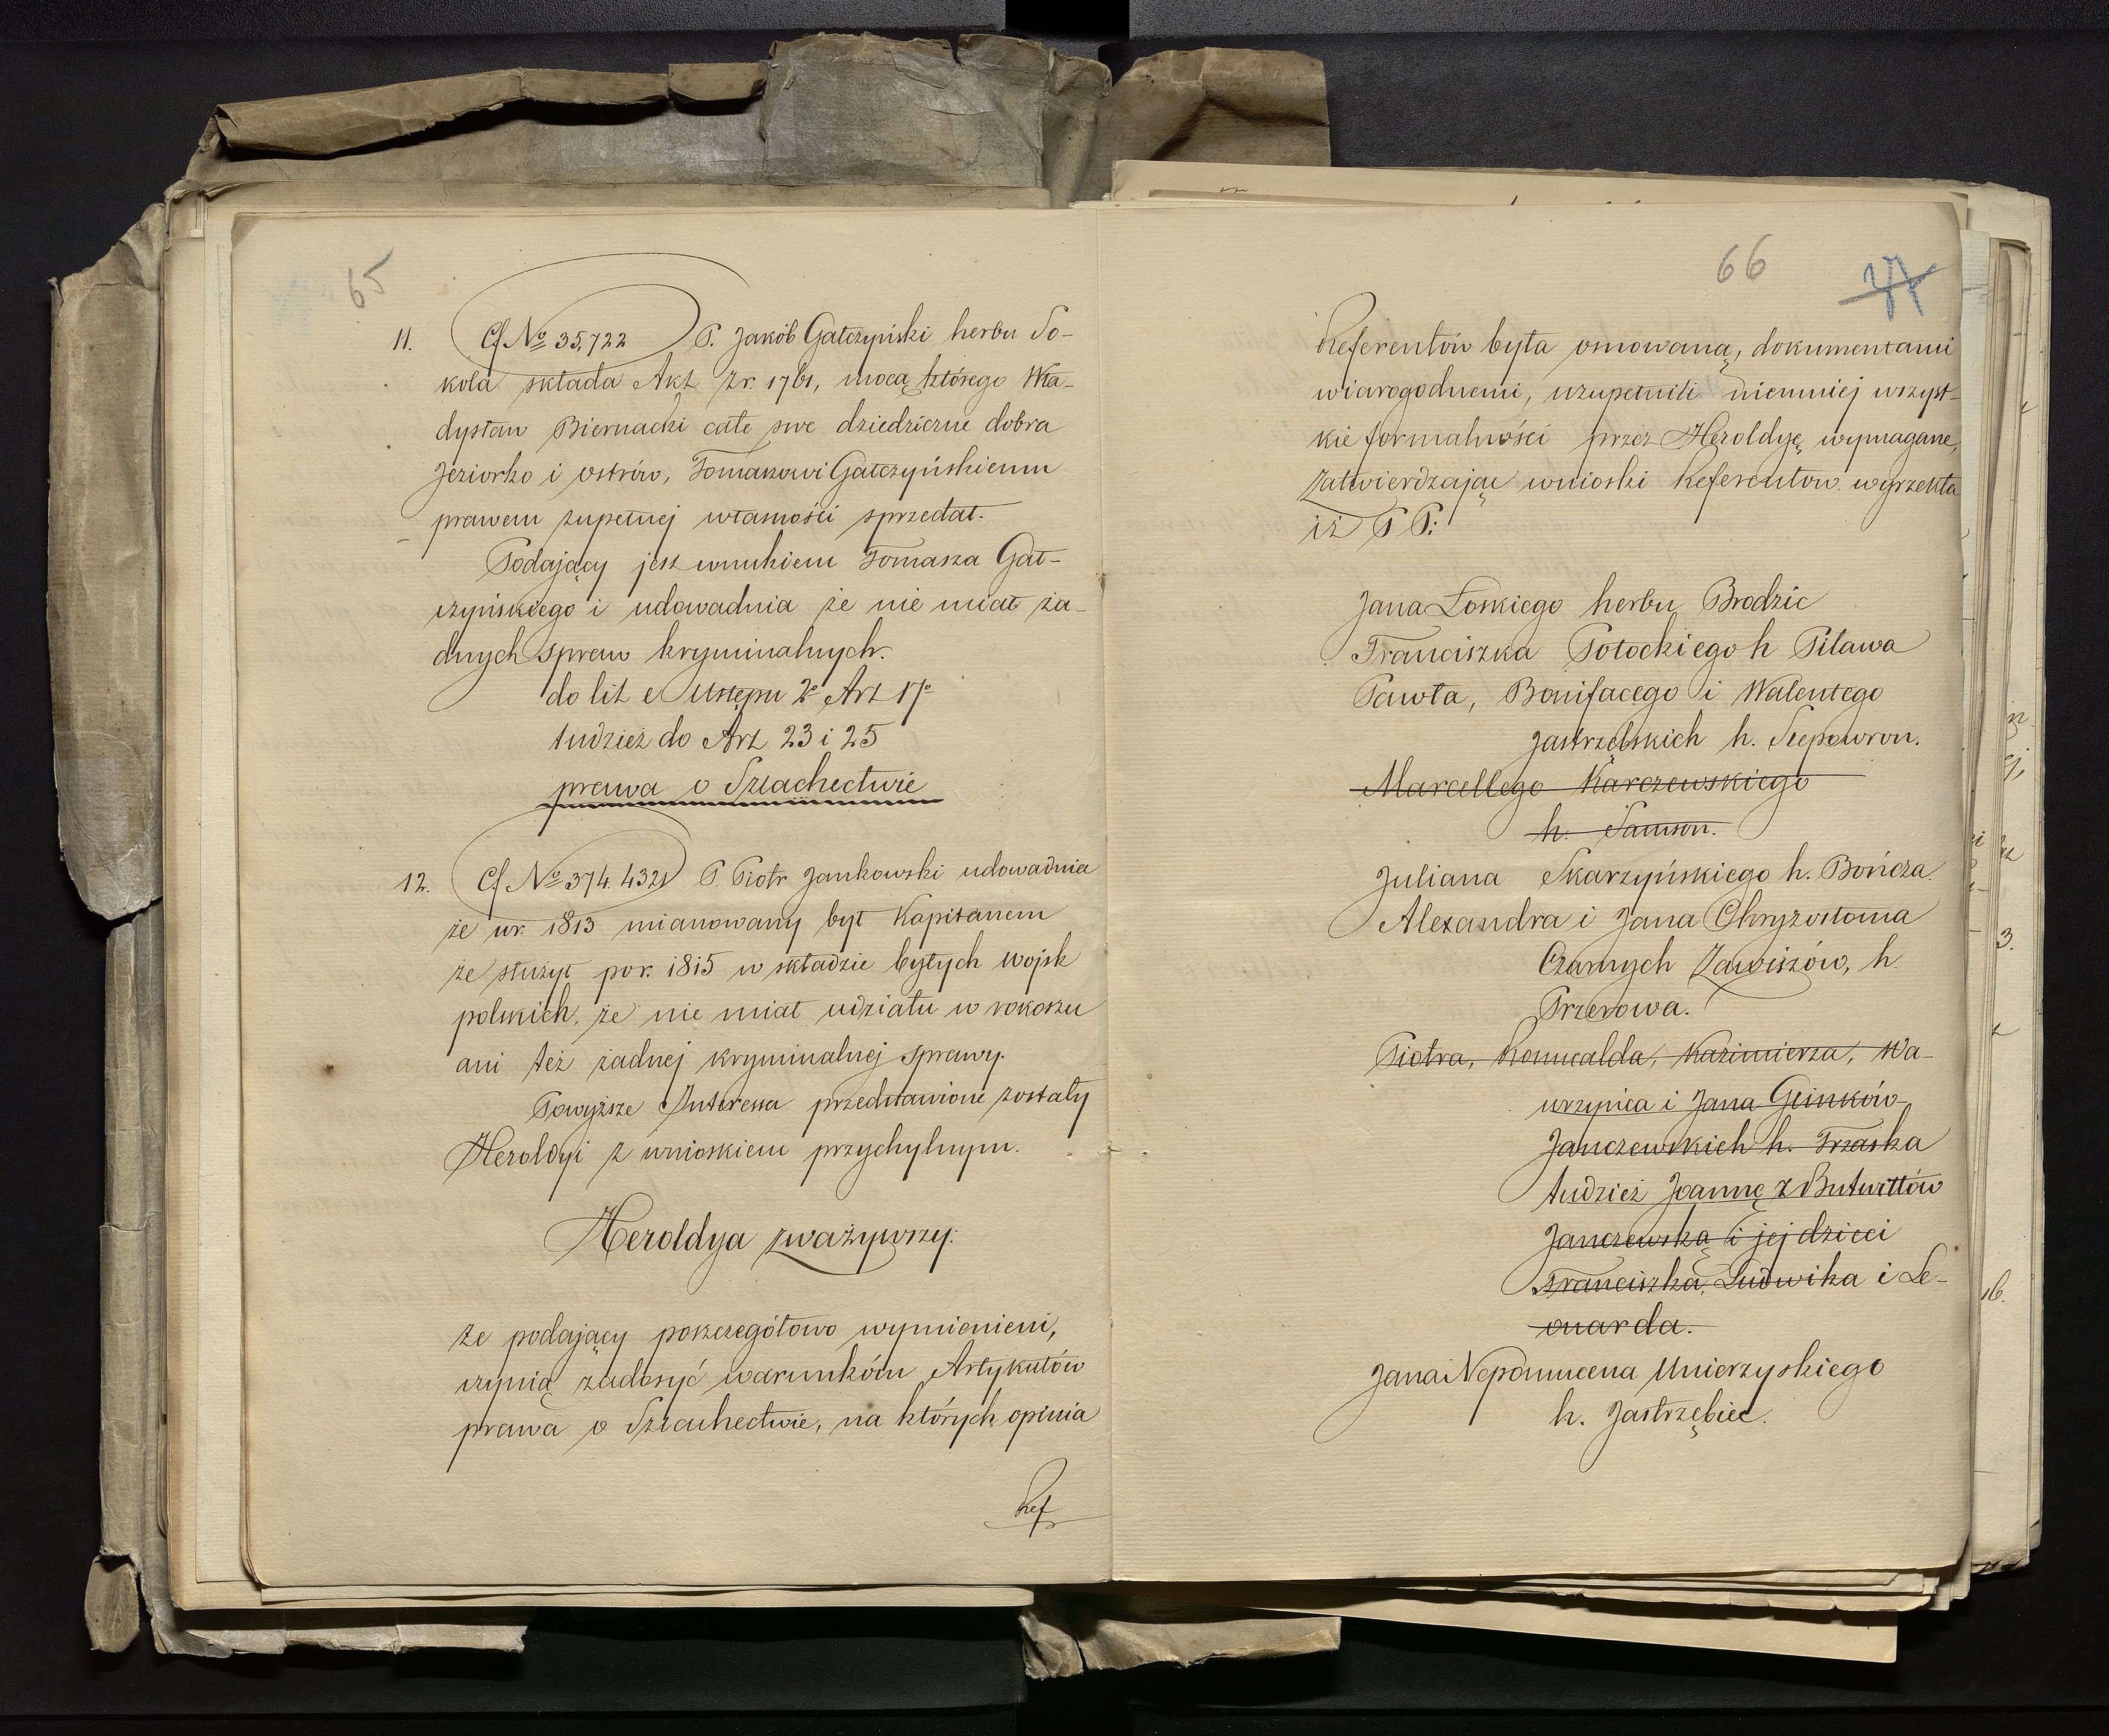 65
11. Cf № 35,722 P. Jakób Gałczyński herbu So-
koła składa Akt z r. 1761, mocą którego Wła-
dysław Biernacki całe swe dziedziczne dobra
Jeziorko i Ostrów, Tomaszowi Gałczyńskiemu
prawem zupełnej własności sprzedał.
Podający jest wnukiem Tomasza Gał-
czyńskiego i udowadnia że nie miał ża-
dnych spraw kryminalnych.
do lit e Ustępu 2º Art 17º
tudzież do Art 23 i 25
prawa o Szlachectwie
12. Cf № 374. 432 P. Piotr Jankowski udowadnia
że w r. 1813 mianowany był Kapitanem
że służył po r. 1815 w składzie byłych wojsk
polskich, że nie miał udziału w rokoszu
ani też żadnej kryminalnej sprawy.
Powyższe Interessa przedstawione zostały
Heroldyi z wnioskiem przychylnym.
Heroldya zważywszy:
że podający poszczegółowo wymienieni,
czynią zadosyć warunkóm Artykułów
prawa o Szlachectwie, na których opinia
Ref
66
77
Referentów była osnowaną, dokumentami
wiarogodnemi, uzupełnili niemniej wszyst-
kie formalności przez Heroldyę wymagane,
zatwierdzając wnioski Referentów wyrzekła
iż P P:
Jana Łoskiego herbu Brodzic
Franciszka Potockiego h Piława
Pawła, Bonifacego i Walentego
Jastrzębskich h. Ślepowron.
Marcellego Karczewskiego
h. Samson.
Juliana Skarzyńskiego h. Bończa.
Alexandra i Jana Chryzostoma
Czarnych Zawiszów, h.
Przerowa.
Piotra, Romualda, Kazimierza, Wa-
wrzyńca i Jana Gŭnków
Janczewskich h. Trzaska
tudzież Joannę z Butwiłłów
Janczewską i jej dzieci
Franciszka, Ludwika i Le-
onarda.
Jana Nepomucena Unierzyskiego
h. Jastrzębiec.